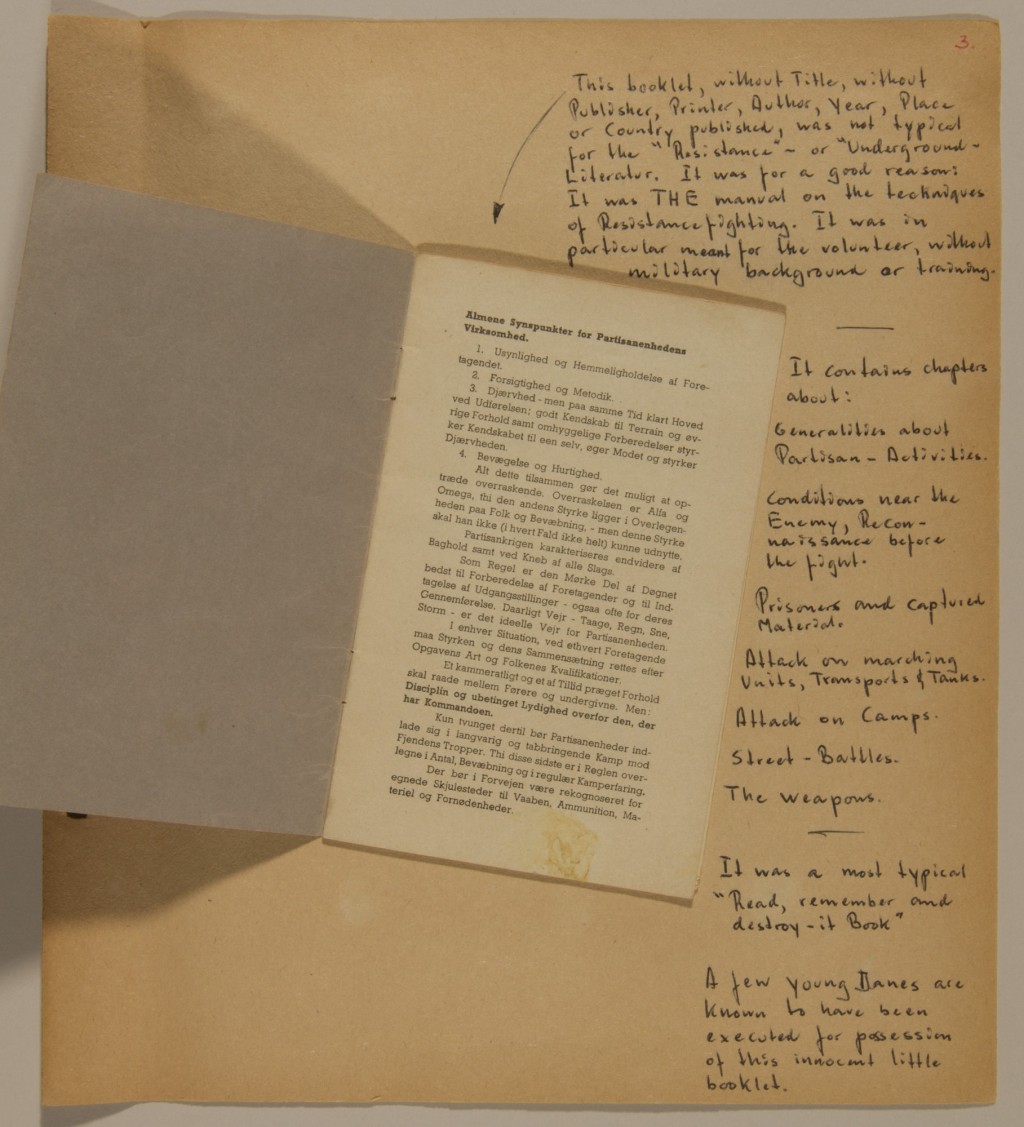 3.
This booklet, without Title, without
Publisher, Printer, Author, Year, Place
or Country published, was not typical
for the "Resistance"- or "Underground-
Literatur. It was for a good reason:
It was THE manual on the techniques
of Resistancefighting. It was in
particular meant for the volunteer, without
military background or training.
Almene Synspunkter for Partisanenhedens
Virksomhed.
1. Usynlighed og Hemmeligholdelse af Fore-
tagendet.
2. Forsigtighed og Metodik.
3. Djærvhed - men paa samme Tid klart Hoved
ved Udførelsen; godt Kendskab til Terrain og øv-
rige Forhold samt omhyggelige Forberedelser styr-
ker Kendskabet til een selv, øger Modet og styrker
Djærvheden.
4. Bevægelse og Hurtighed.
Alt dette tilsammen gør det muligt at op-
træde overraskende. Overraskelsen er Alfa og
Omega, thi den andens Styrke ligger i Overlegen-
heden paa Folk og Bevæbning, - men denne Styrke
skal han ikke (i hvert Fald ikke helt) kunne udnytte.
Partisankrigen karakteriseres endvidere af
Baghold samt ved Kneb af alle Slags.
Som Regel er den Mørke Del af Døgnet
bedst til Forberedelse af Foretagender og til Ind-
tagelse af Udgangsstillinger - ogsaa ofte for deres
Gennemførelse. Daarligt Vejr - Taage, Regn, Sne,
Storm - er det ideelle Vejr for Partisanenheden.
I enhver Situation, ved ethvert Foretagende
maa Styrken og dens Sammensætning rettes efter
Opgavens Art og Folkenes Kvalifikationer.
Et kammeratligt og et af Tillid præget Forhold
skal raade mellem Førere og undergivne. Men:
Disciplin og ubetinget Lydighed overfor den, der
har Kommandoen.
Kun tvunget dertil bør Partisanenheder ind-
lade sig i langvarig og tabbringende Kamp mod
Fjendens Tropper. Thi disse sidste er i Reglen over-
legne i Antal, Bevæbning og i regulær Kamperfaring.
Der bør i Forvejen være rekognoseret for
egnede Skjulesteder til Vaaben, Ammunition, Ma-
teriel og Fornødenheder.
It contains chapters
about:
Generalities about
Partisan - Activities.
Conditions near the
Enemy, Recon-
naissance before
the fight.
Prisoners and captured
Material.
Attack on marching
Units, Transports & Tanks.
Attack on Camps.
Street - Battles.
The weapons.
It was a most typical
"Read, remember and
destroy - it Book"
A few young Danes are
known to have been
executed for possession
of this innocent little
booklet.